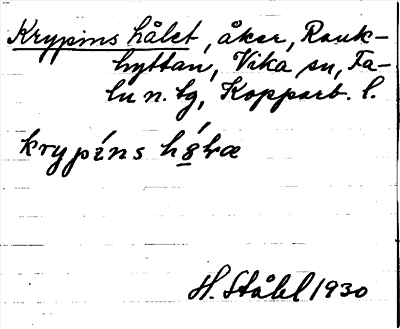 Krypins hålet, åker, Rank-
hyttan, Vika sn, Fa-
lu n. tg, Kopparb. l.
krypíns hó̱łæ
H. Ståhl 1930